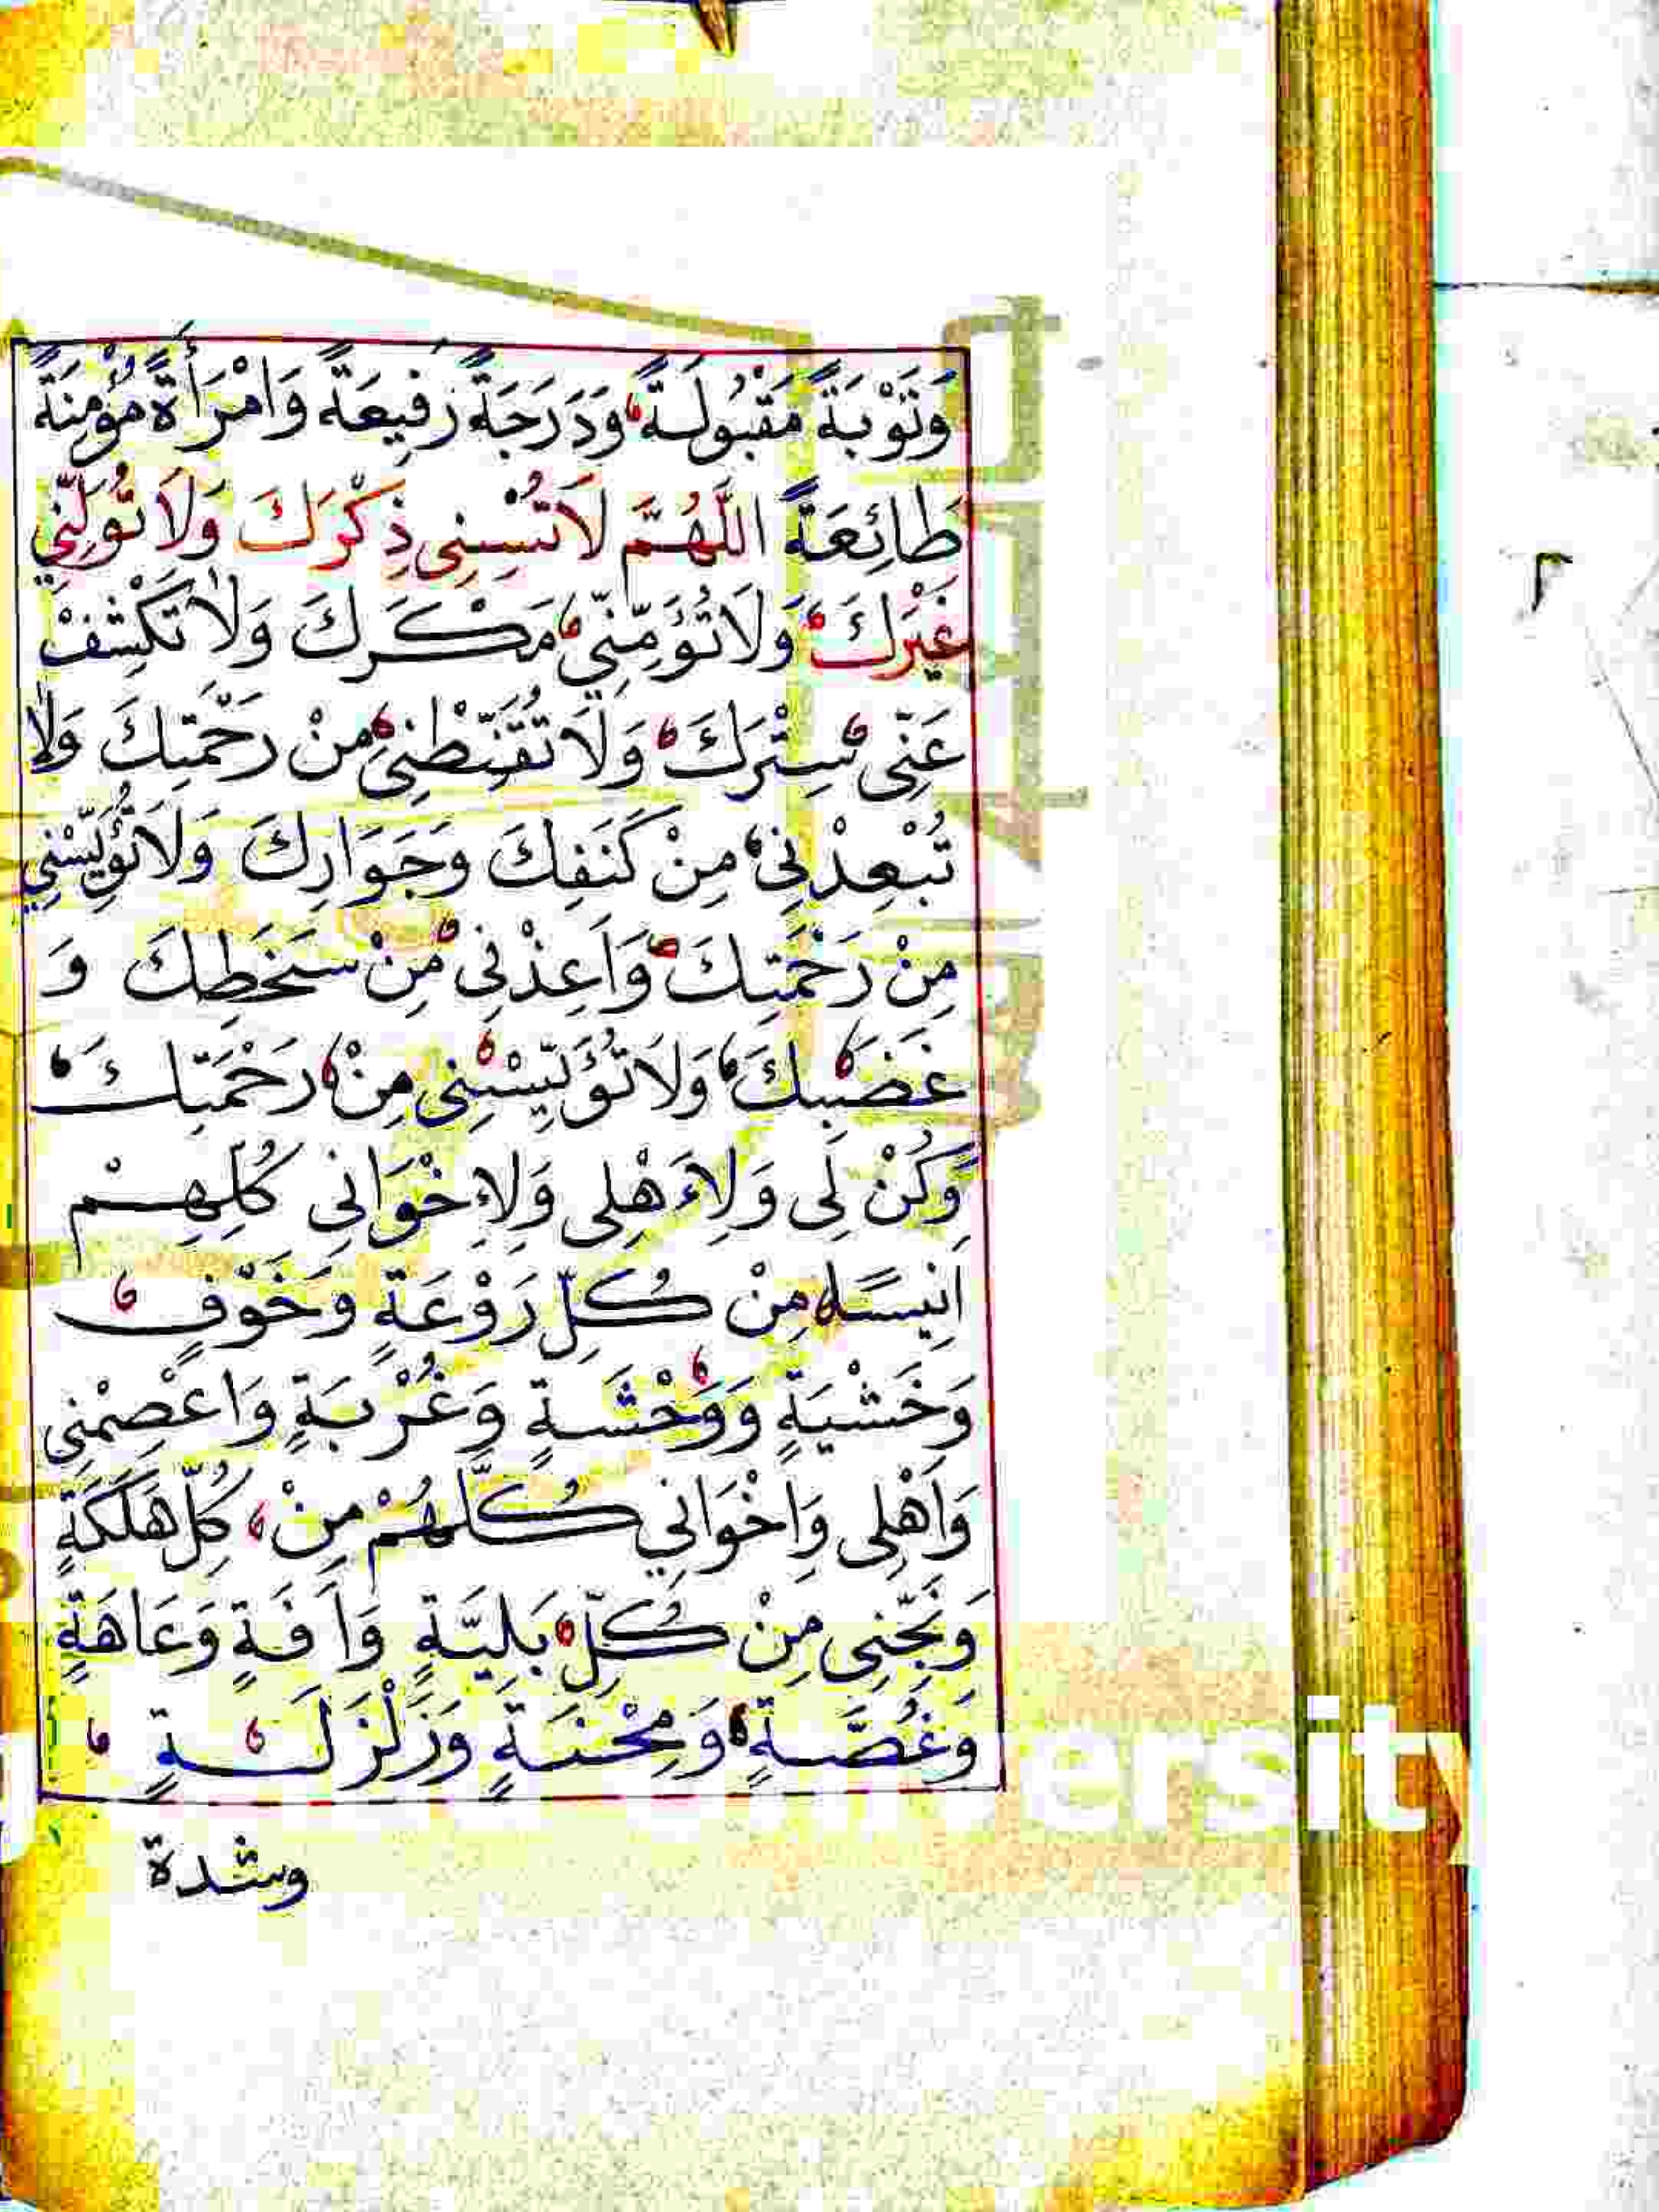 وَتَوْبَةً مَقْبُولَةً وَدَرَجَةً رَفِيعَةً وَامْرَأَةً مُؤْمِنَةً
طَائِعَةً اللَّهُمَّ لَاتُنْسِنِى ذِكْرَكَ وَلَا تُوَلِّنِي
غَيْرَكَ وَلَاتُؤَمِّنِّي مَكْرَكَ وَلَا تَكْشِفْ
عَنِّى سِتْرَكَ وَلَا تُقَنِّطْنِى مِنْ رَحْمَتِكَ وَلَا
تُبْعِدْنِى مِنْ كَنَفِكَ وَجَوَارِكَ وَلَاتُؤَيِّسْنِي
مِنْ رَحْمَتِكَ وَاَعِذْنِى مِنْ سَخَطِكَ وَ
غَضَبِكَ وَلَاتُؤَيِّسْنِى مِنْ رَحْمَتِكَ
وَكُنْ لِى وَلِاَهْلِى وَلِاِخْوَانِى كُلِّهِمْ
اَنِيسًا مِنْ كُلِّ رَوْعَةٍ وَخَوْفٍ
وَخَشْيَةٍ وَوَحْشَةٍ وَغُرْبَةٍ وَاعْصِمْنِى
وَاَهْلِى وَاِخْوَانِي كُلَّهُمْ مِنْ كُلِّ هَلَكَةٍ
وَنَجِّنِى مِنْ كُلِّ بَلِيَّةٍ وَاَفَةٍ وَعَاهَةٍ
وَغُصَّةٍ وَمِحْنَةٍ وَزَلْزَلَةٍ
وشدة
٣